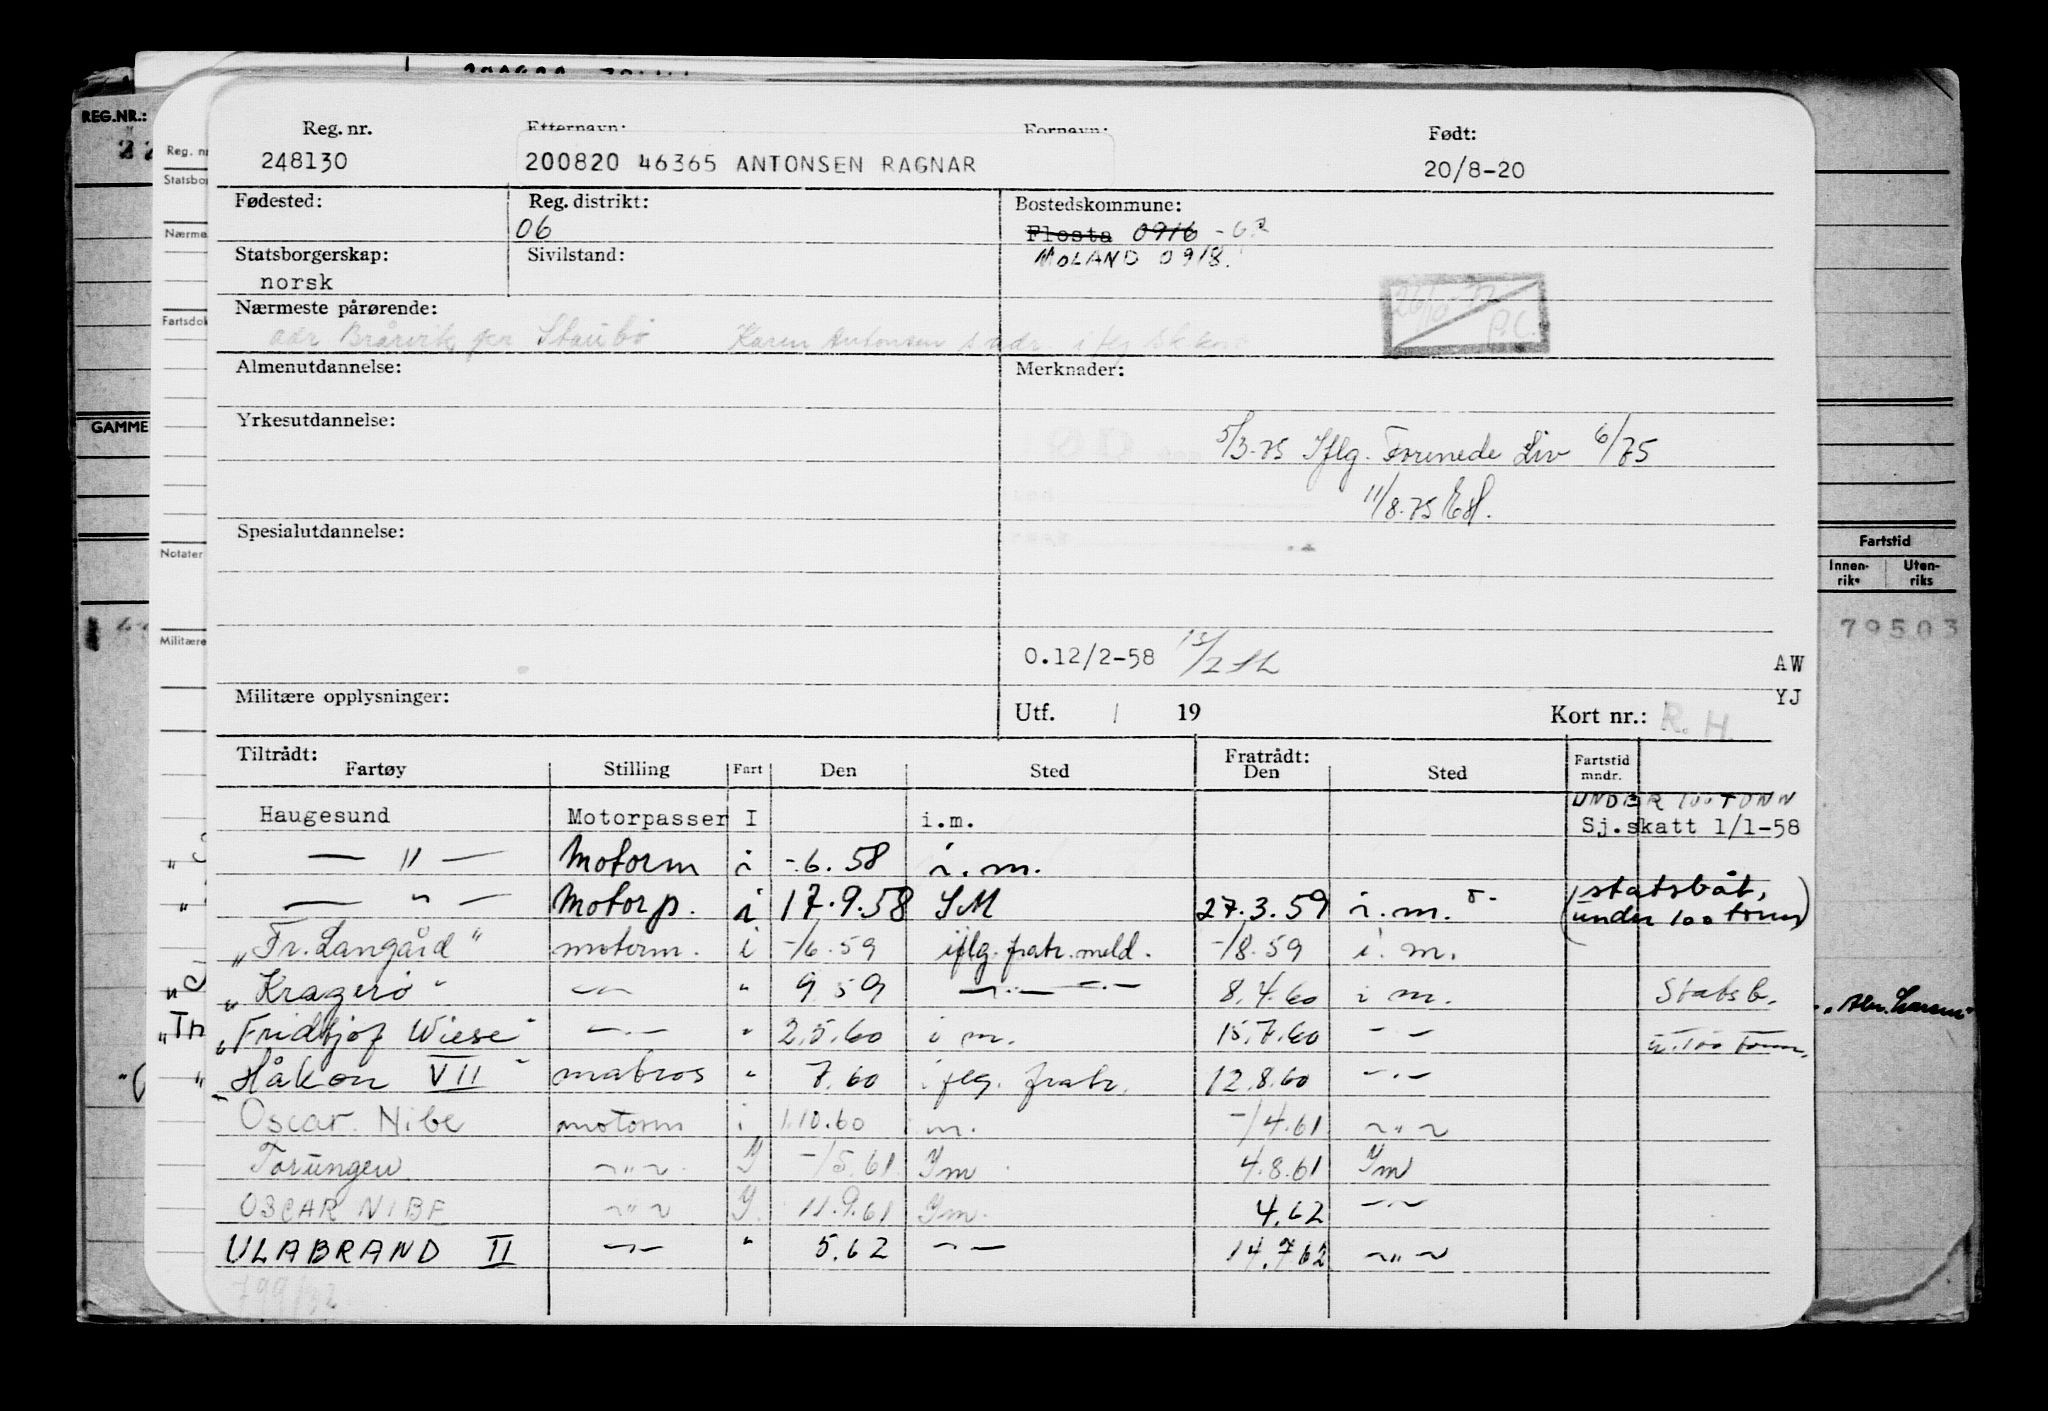 REG.NR.:
Reg. nr.
Etternavn:
Fornavn:
Født:
248130
200820 46365 ANTONSEN RAGNAR
20/8-20
Fødested:
Reg. distrikt:
Bostedskommune:
06
Flosta 0916
Statsborgerskap:
Sivilstand:
MOLAND 0918.
norsk
Nærmeste pårørende:
adr Bråvik per Staubø Karen Antonsen s adr. iflg
Almenutdannelse:
Merknader:
Yrkesutdannelse:
GAMME
5/3-75 Iflg. Forenede Liv 6/75
11/8.75
Spesialutdannelse:
Notater
Fartstid
Innen-riks
Uten-riks
79503
Militære
0.12/2-58
AW
YJ
Militære opplysninger:
Utf. / 19
Kort nr.: R.H.
Tiltrådt:
Fartøy Stilling Fart Den Sted
Fratrådt:
Den Sted
Fartstid mndr.
UNDER 100 TONN
Haugesund Motorpasser I i.m. Sj.skatt 1/1-58
— " — Motorm i -.6.58 i.m.
— " — Motorp. i 17.9.58 SM 27.3.59 i.m. (statsbåt, under 100 tonn)
"Fr. Langård" motorm. i -/6.59 iflg. fratr. meld. -/8.59 i.m.
"Kragerö" —"— " 9.59 —"— 8.4.60 i m. Statsb.
"Fridtjof Wiese" —"— " 2.5.60 i m. 15.7.60 —"— u. 100 tonn.
"Håkon VII" matros " 7.60 iflg. fratr. 12.8.60 —"—
Oscar Nibe motorm i 1.10.60 i m. -/4.61 —"—
Torungen —"— I -/5.61 Im 4.8.61 Im
OSCAR NIBE —"— I. 11.9.61 Im. 4.62 —"—
ULABRAND II —"— " 5.62 —"— 14.7.62 —"—
799/32